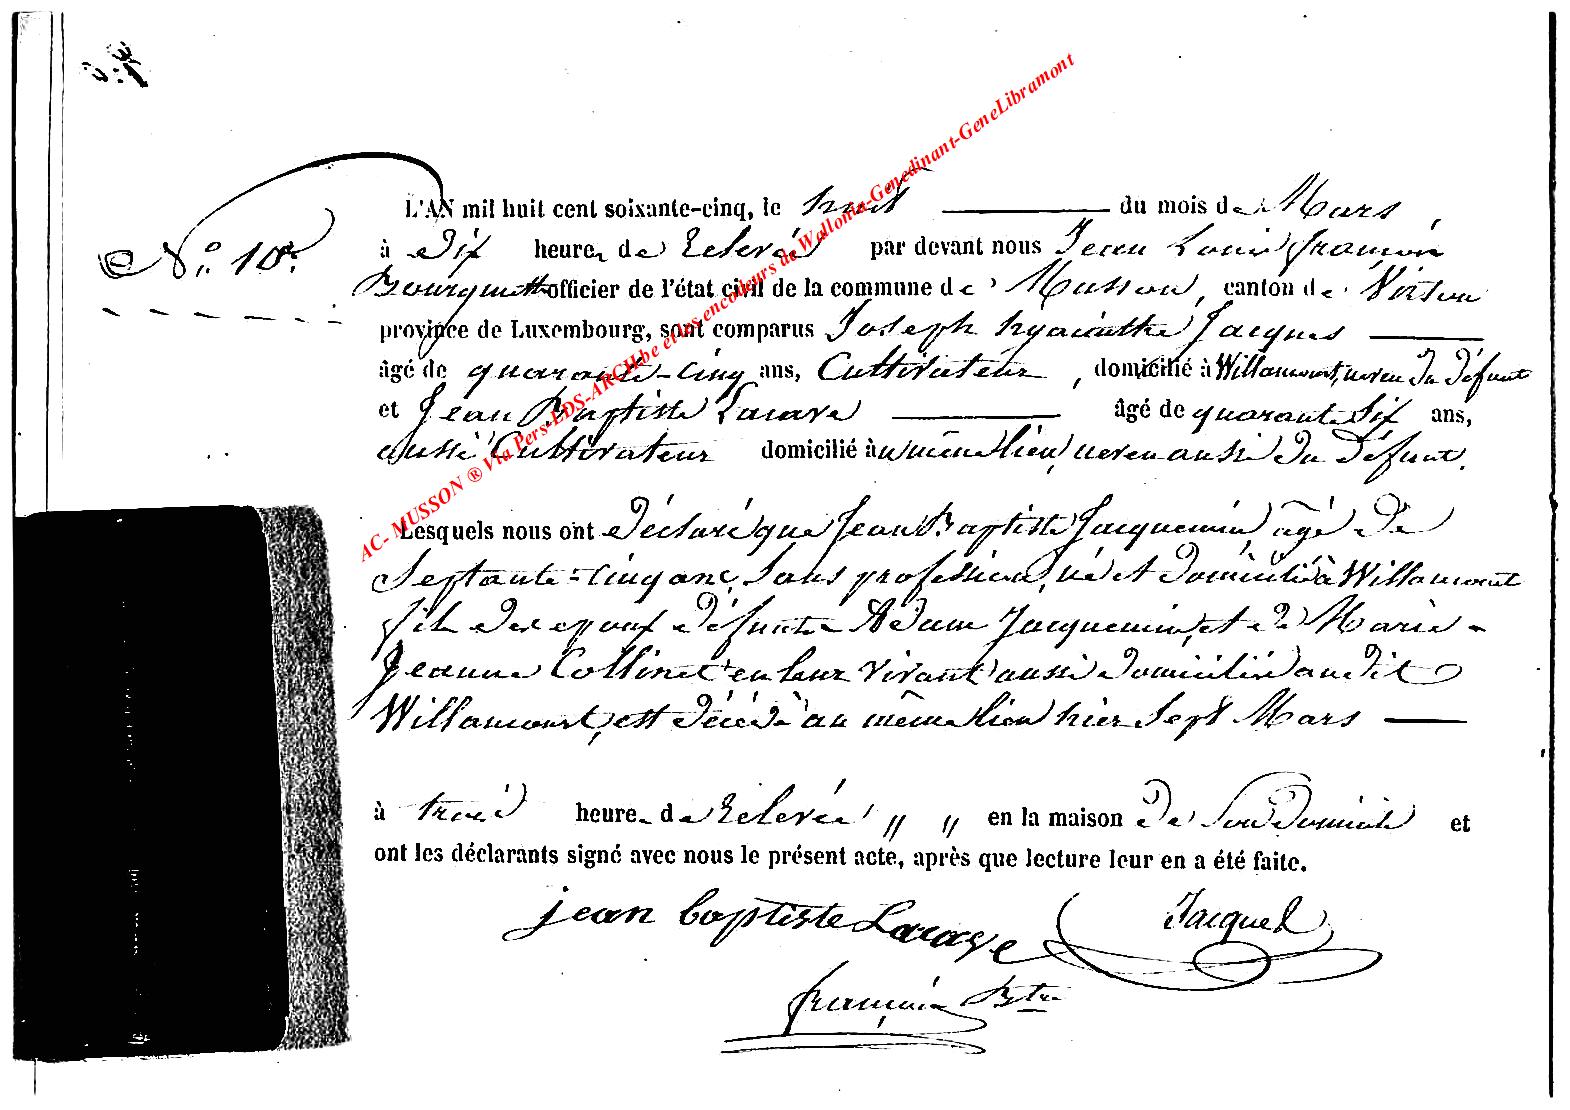 L'AN mil huit cent soixante-cinq, le huit du mois de Mars,
N.° 10.
à Six heures de relevée par devant nous Jean Louis françois
Bourguet officier de l'état civil de la commune de Musson, canton de Virton
province de Luxembourg, sont comparus Joseph hyacinthe Jacques
âgé de quarante-cinq ans, Cultivateur, domicilié à Willancourt, neveu du défunt
et Jean Baptiste Lavave âgé de quarante six ans,
aussi Cultivateur domicilié au même lieu, neveu aussi du défunt.
Lesquels nous ont déclaré que Jean Baptiste Jacquemin âgé de
Septante-cinq ans, Sans profession, né et domicilié à Willancourt
fils des époux défunts Adam Jacquemin, et de Marie-
Jeanne Collinet en leur vivant aussi domiciliés audit
Willancourt, est décédé au même lieu hier Sept Mars
à trois heures de relevée " " en la maison de Son domicile et
ont les déclarants signé avec nous le présent acte, après que lecture leur en a été faite.
jean baptiste Lavave Jacques
françois Btte
AC- MUSSON ® Via Pers-EDS-ARCH.be et les encodeurs de Wallonia-Genedinant-GeneLibramont